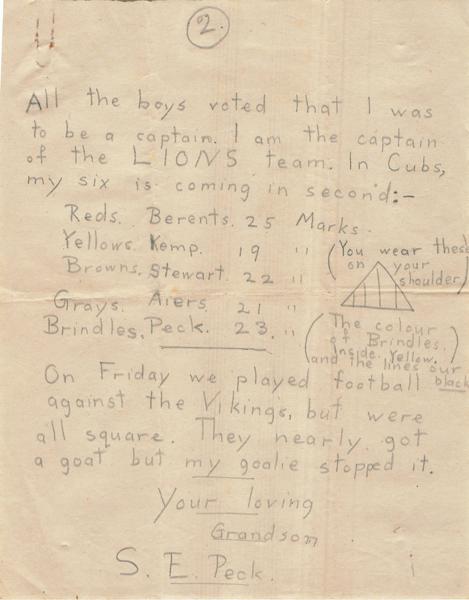 2.
All the boys voted that I was
to be a captain. I am the captain
of the LIONS team. In Cubs,
my six is coming in second:-
Reds. Berents. 25 Marks.
Yellows. Kemp. 19 "
Browns. Stewart. 22 "
Grays. Aiers. 21 "
Brindles. Peck. 23. "
(You wear these
on your
shoulder)
(The colour
of Brindles.
Inside. Yellow.
and the lines our
black
On Friday we played football
against the Vikings, but were
all square. They nearly got
a goat but my goalie stopped it.
Your loving
Grandson
S. E. Peck.